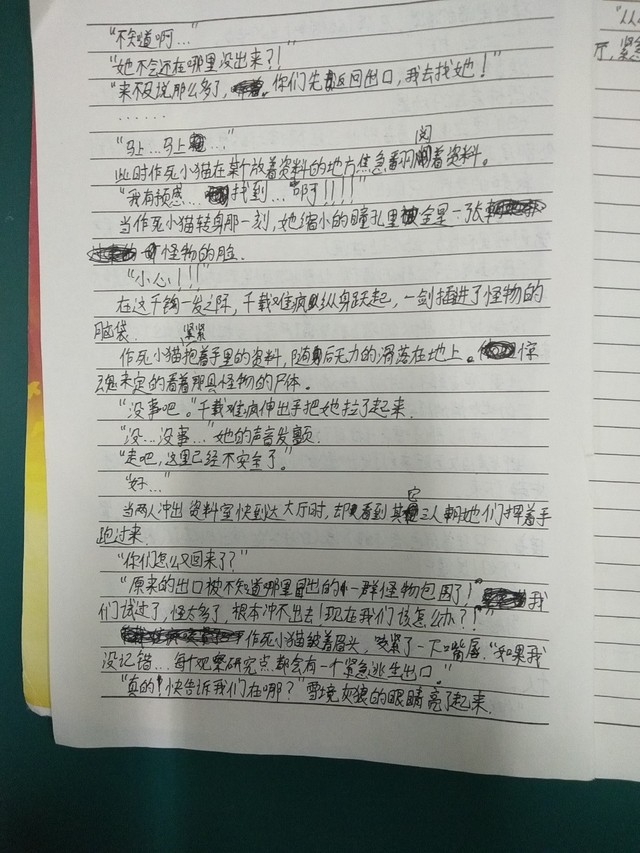 “不知道啊…”
“她不会还在哪里没出来?!”
“来不及说那么多了, 你们先返回出口,我去找她!”
······
“马上…马上…”
此时作死小猫在某个放着资料的地方焦急翻阅着资料。
“我有预感… 找到…啊!!!!”
当作死小猫转身那一刻,她缩小的瞳孔里全是一张
怪物的脸.
“小心!!!”
在这千钧一发之际,千载难疯纵身跃起,一剑插进了怪物的
脑袋.
作死小猫紧紧抱着手里的资料,随后无力的滑落在地上。惊
魂未定的看着那具怪物的尸体。
“没事吧。”千载难疯伸出手把她拉了起来.
“没…没事…”她的声音发颤.
“走吧,这里已经不安全了。”
“好…”
当两人冲出资料室快到达大厅时,却看到其它三人朝她们挥着手
跑过来.
“你们怎么又回来了?”
“原来的出口被不知道哪里冒出的一群怪物包围了!” 我
们试过了,怪太多了,根本冲不出去!现在我们该怎么办?!”
作死小猫皱着眉头,咬紧了一下嘴唇.“如果我
没记错…每个观察研究点都会有一个紧急逃生出口。”
“真的!快告诉我们在哪?”雪境灰狼的眼睛亮了起来.
“从
厅,紧急